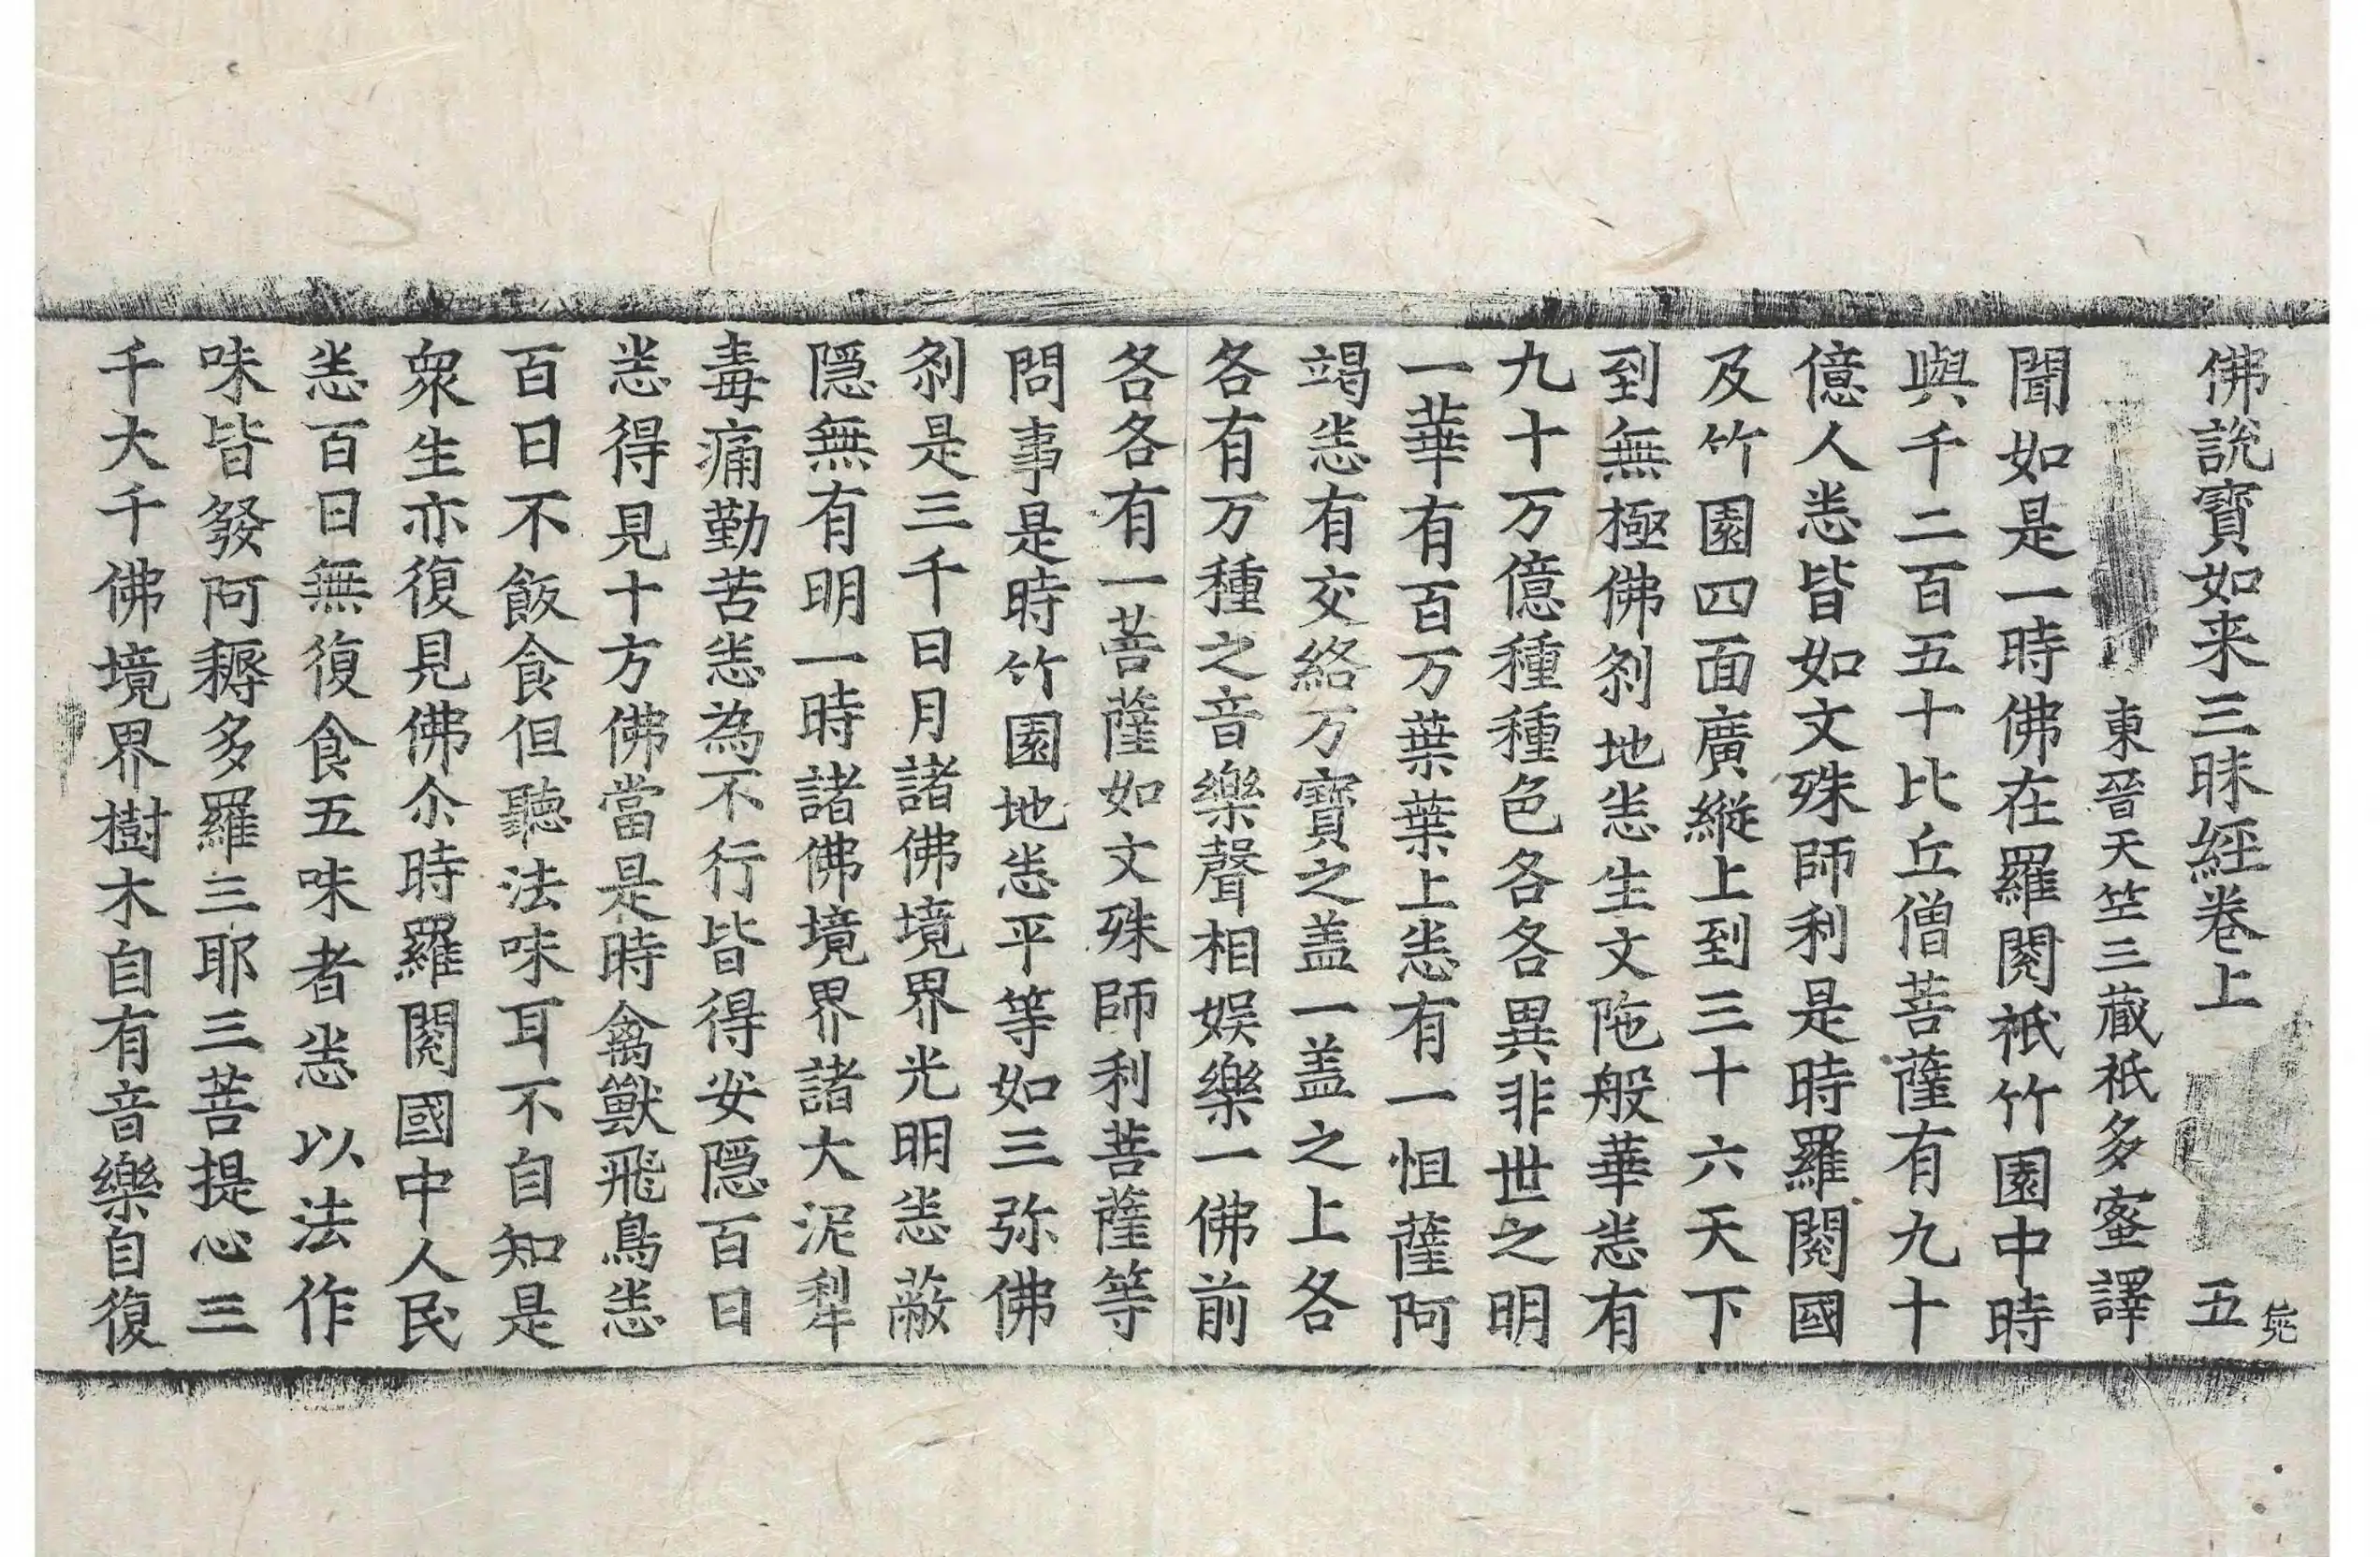 佛說寶如来三昧經卷上 五
東晉天竺三藏祇多蜜譯
聞如是一時佛在羅閱祇竹園中時
與千二百五十比丘僧菩薩有九十
億人悉皆如文殊師利是時羅閱國
及竹園四面廣縱上到三十六天下
到無極佛刹地悉生文陁般華悉有
九十万億種種色各各異非世之明
一華有百万葉葉上悉有一怛薩阿
竭悉有交絡万寶之盖一盖之上各
各有万種之音樂聲相娱樂一佛前
各各有一菩薩如文殊師利菩薩等
問事是時竹園地悉平等如三弥佛
刹是三千日月諸佛境界光明悉蔽
隱無有明一時諸佛境界諸大泥犁
毒痛勤苦悉為不行皆得安隱百日
悉得見十方佛當是時禽獸飛鳥悉
百日不飯食但聽法味耳不自知是
衆生亦復見佛尒時羅閱國中人民
悉百日無復食五味者悉以法作
味皆發阿耨多羅三耶三菩提心三
千大千佛境界樹木自有音樂自復